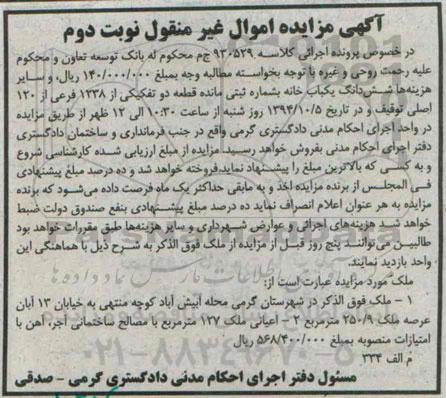 آگهی مزایده اموال غیر منقول نوبت دوم
در خصوص پرونده اجرائی کلاسه ۹۳۰۵۲۹ ج‌م محکوم له بانک توسعه تعاون و محکوم
علیه رحمت روحی و غیره با توجه بخواسته مطالبه وجه بمبلغ ۱۴۰/۰۰۰/۰۰۰ ریال، و سایر
هزینه‌ها شش‌دانگ یکباب خانه بشماره ثبتی مانده قطعه دو تفکیکی از ۱۲۳۸ فرعی از ۱۲۰
اصلی توقیف و در تاریخ ۱۳۹۴/۱۰/۵ روز شنبه از ساعت ۱۰:۳۰ الی ۱۲ ظهر از طریق مزایده
در واحد اجرای احکام مدنی دادگستری گرمی واقع در جنب فرمانداری و ساختمان دادگستری
دفتر اجرای احکام مدنی بفروش خواهد رسید. مزایده از مبلغ ارزیابی شده کارشناسی شروع
و به کسی که بالاترین مبلغ را پیشنهاد نماید، فروخته خواهد شد و ده درصد مبلغ پیشنهادی
فی المجلس از برنده مزایده اخذ و به مابقی حداکثر یک ماه فرصت داده می‌شود که برنده
مزایده به هر عنوان اعلام انصراف نماید ده درصد مبلغ پیشنهادی بنفع صندوق دولت ضبط
خواهد شد. هزینه‌های اجرائی و عوارض شهرداری و سایر هزینه‌ها طبق مقررات خواهد بود
طالبین می‌توانند پنج روز قبل از مزایده از ملک فوق الذکر به شرح ذیل با هماهنگی این
واحد بازدید نمایند.
ملک مورد مزایده عبارت است از:
۱ - ملک فوق الذکر در شهرستان گرمی محله آبیش آباد کوچه منتهی به خیابان ۱۳ آبان
عرصه ملک ۲۵۰/۹ مترمربع ۲- اعیانی ملک ۱۲۷ مترمربع با مصالح ساختمانی آجر، آهن با
امتیازات منصوبه بمبلغ ۵۶۸/۴۰۰/۰۰۰ ریال
م الف ۳۳۴
مسئول دفتر اجرای احکام مدنی دادگستری گرمی - صدقی
۰۲۱-۸۸۳۴۹۶۷۰-۵